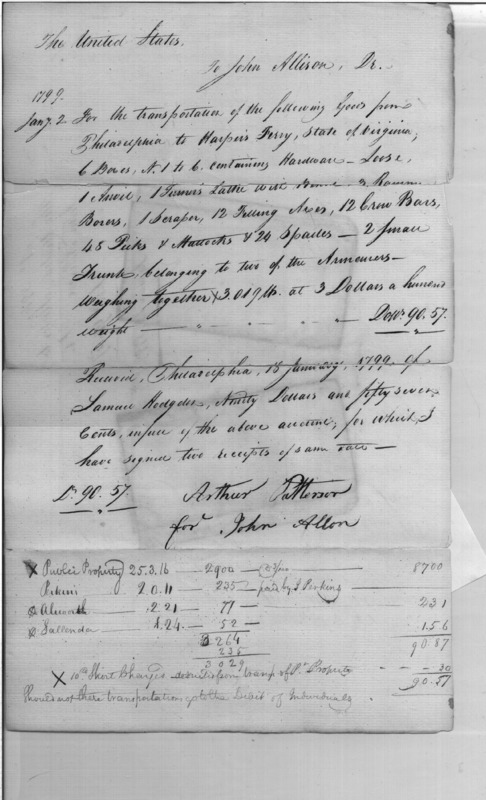 The United States,
To John Allison, Dr.
1799.
Jany. 2 For the transportation of the following Goods from
Philadelphia to Harper's Ferry, State of Virginia;
6 Boxes, N. 1 to 6. containing Hardware - Loose,
1 Anvil, 1 Turner's Lathe with Bench 3
Borers, 1 Scraper, 12 Felling Axes, 12 Crow Bars,
48 Picks & Mattocks & 24 Spades — 2 small
Trunks belonging to two of the Armourers —
weighing together X 3.019 lbs. at 3 Dollars a hundred
weight — " " " " Dolrs. 90.57.
Received, Philadelphia, 18 January, 1799, of
Samuel Hodgdon, Ninety Dollars and fifty seven
Cents, in full of the above account, for which I
have signed two receipts of same date —
Ds. 90.57.
Arthur Patterson
for John Allon
X Public Property 25.3.16 — 2900 — 8700
Perkins 2.0.11 — 235 — paid by J Perkins
2.21 — 77 — 231
1.24 — 52 — 156
264
235
3029
90.87
X 10 lb Short Charged deducted from transp. of P. Property - - - 30
90.57
Should not there transportation go to the Debit of Individuals